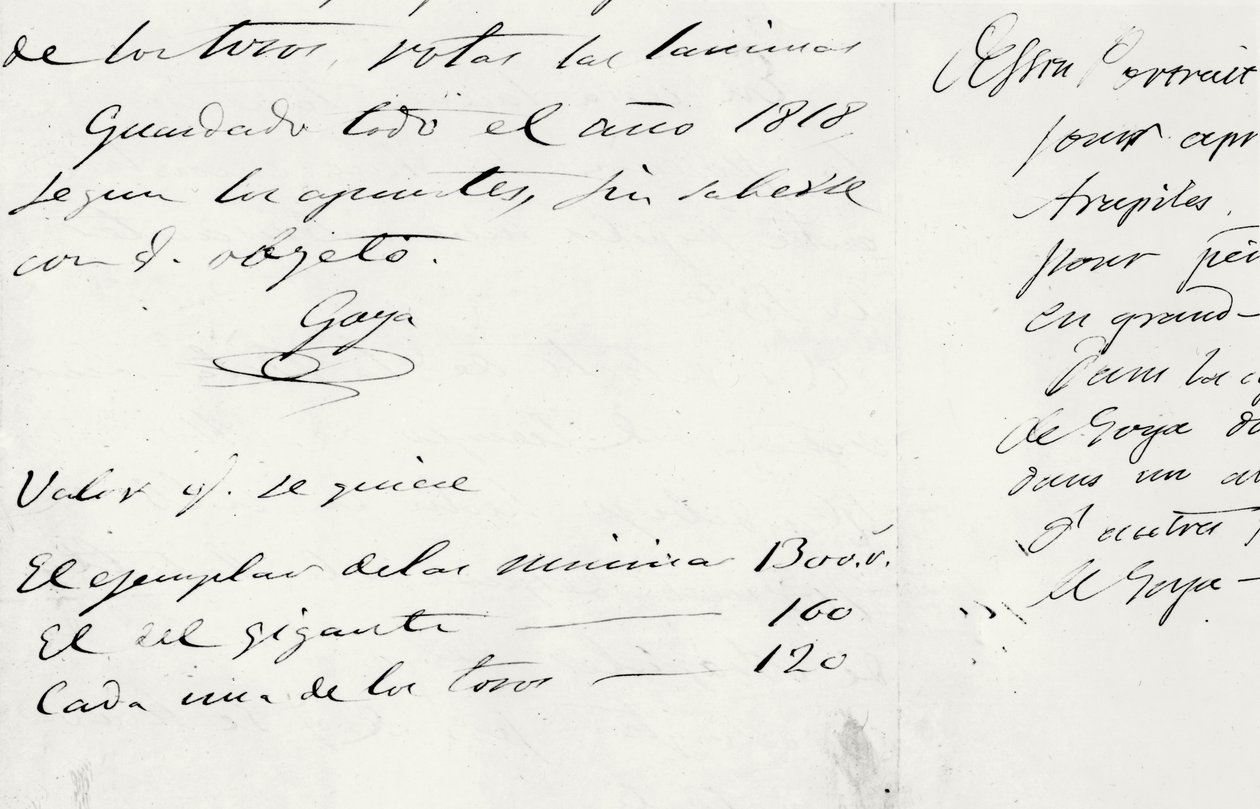 de los toros, rotas las laminas
Guardado todo el año 1818
segun los apuntes, sin saberse
con q. objeto.
Goya
Valor q. se quiere
El ejemplar de las mininas 1300.r.
El del gigante — 160
Cada una de los toros — 120
Essin Portrait
pour apr
Arapiles,
pour pei
en grand —
Dans la
de Goya
dans un
d'autres
de Goya —